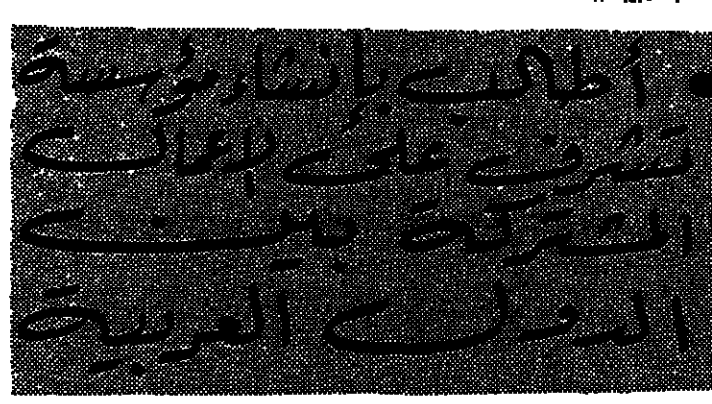 • أطالب بإنشاء مؤسسة
تشرف على الأعمال
المشتركة بين
الدول العربية